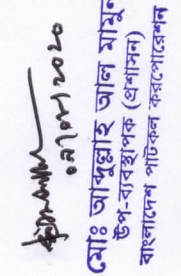 মোঃ আব্দুল্লাহ আল মামুন
উপ-ব্যবস্থাপক (প্রশাসন)
বাংলাদেশ পাটকল করপোরেশন